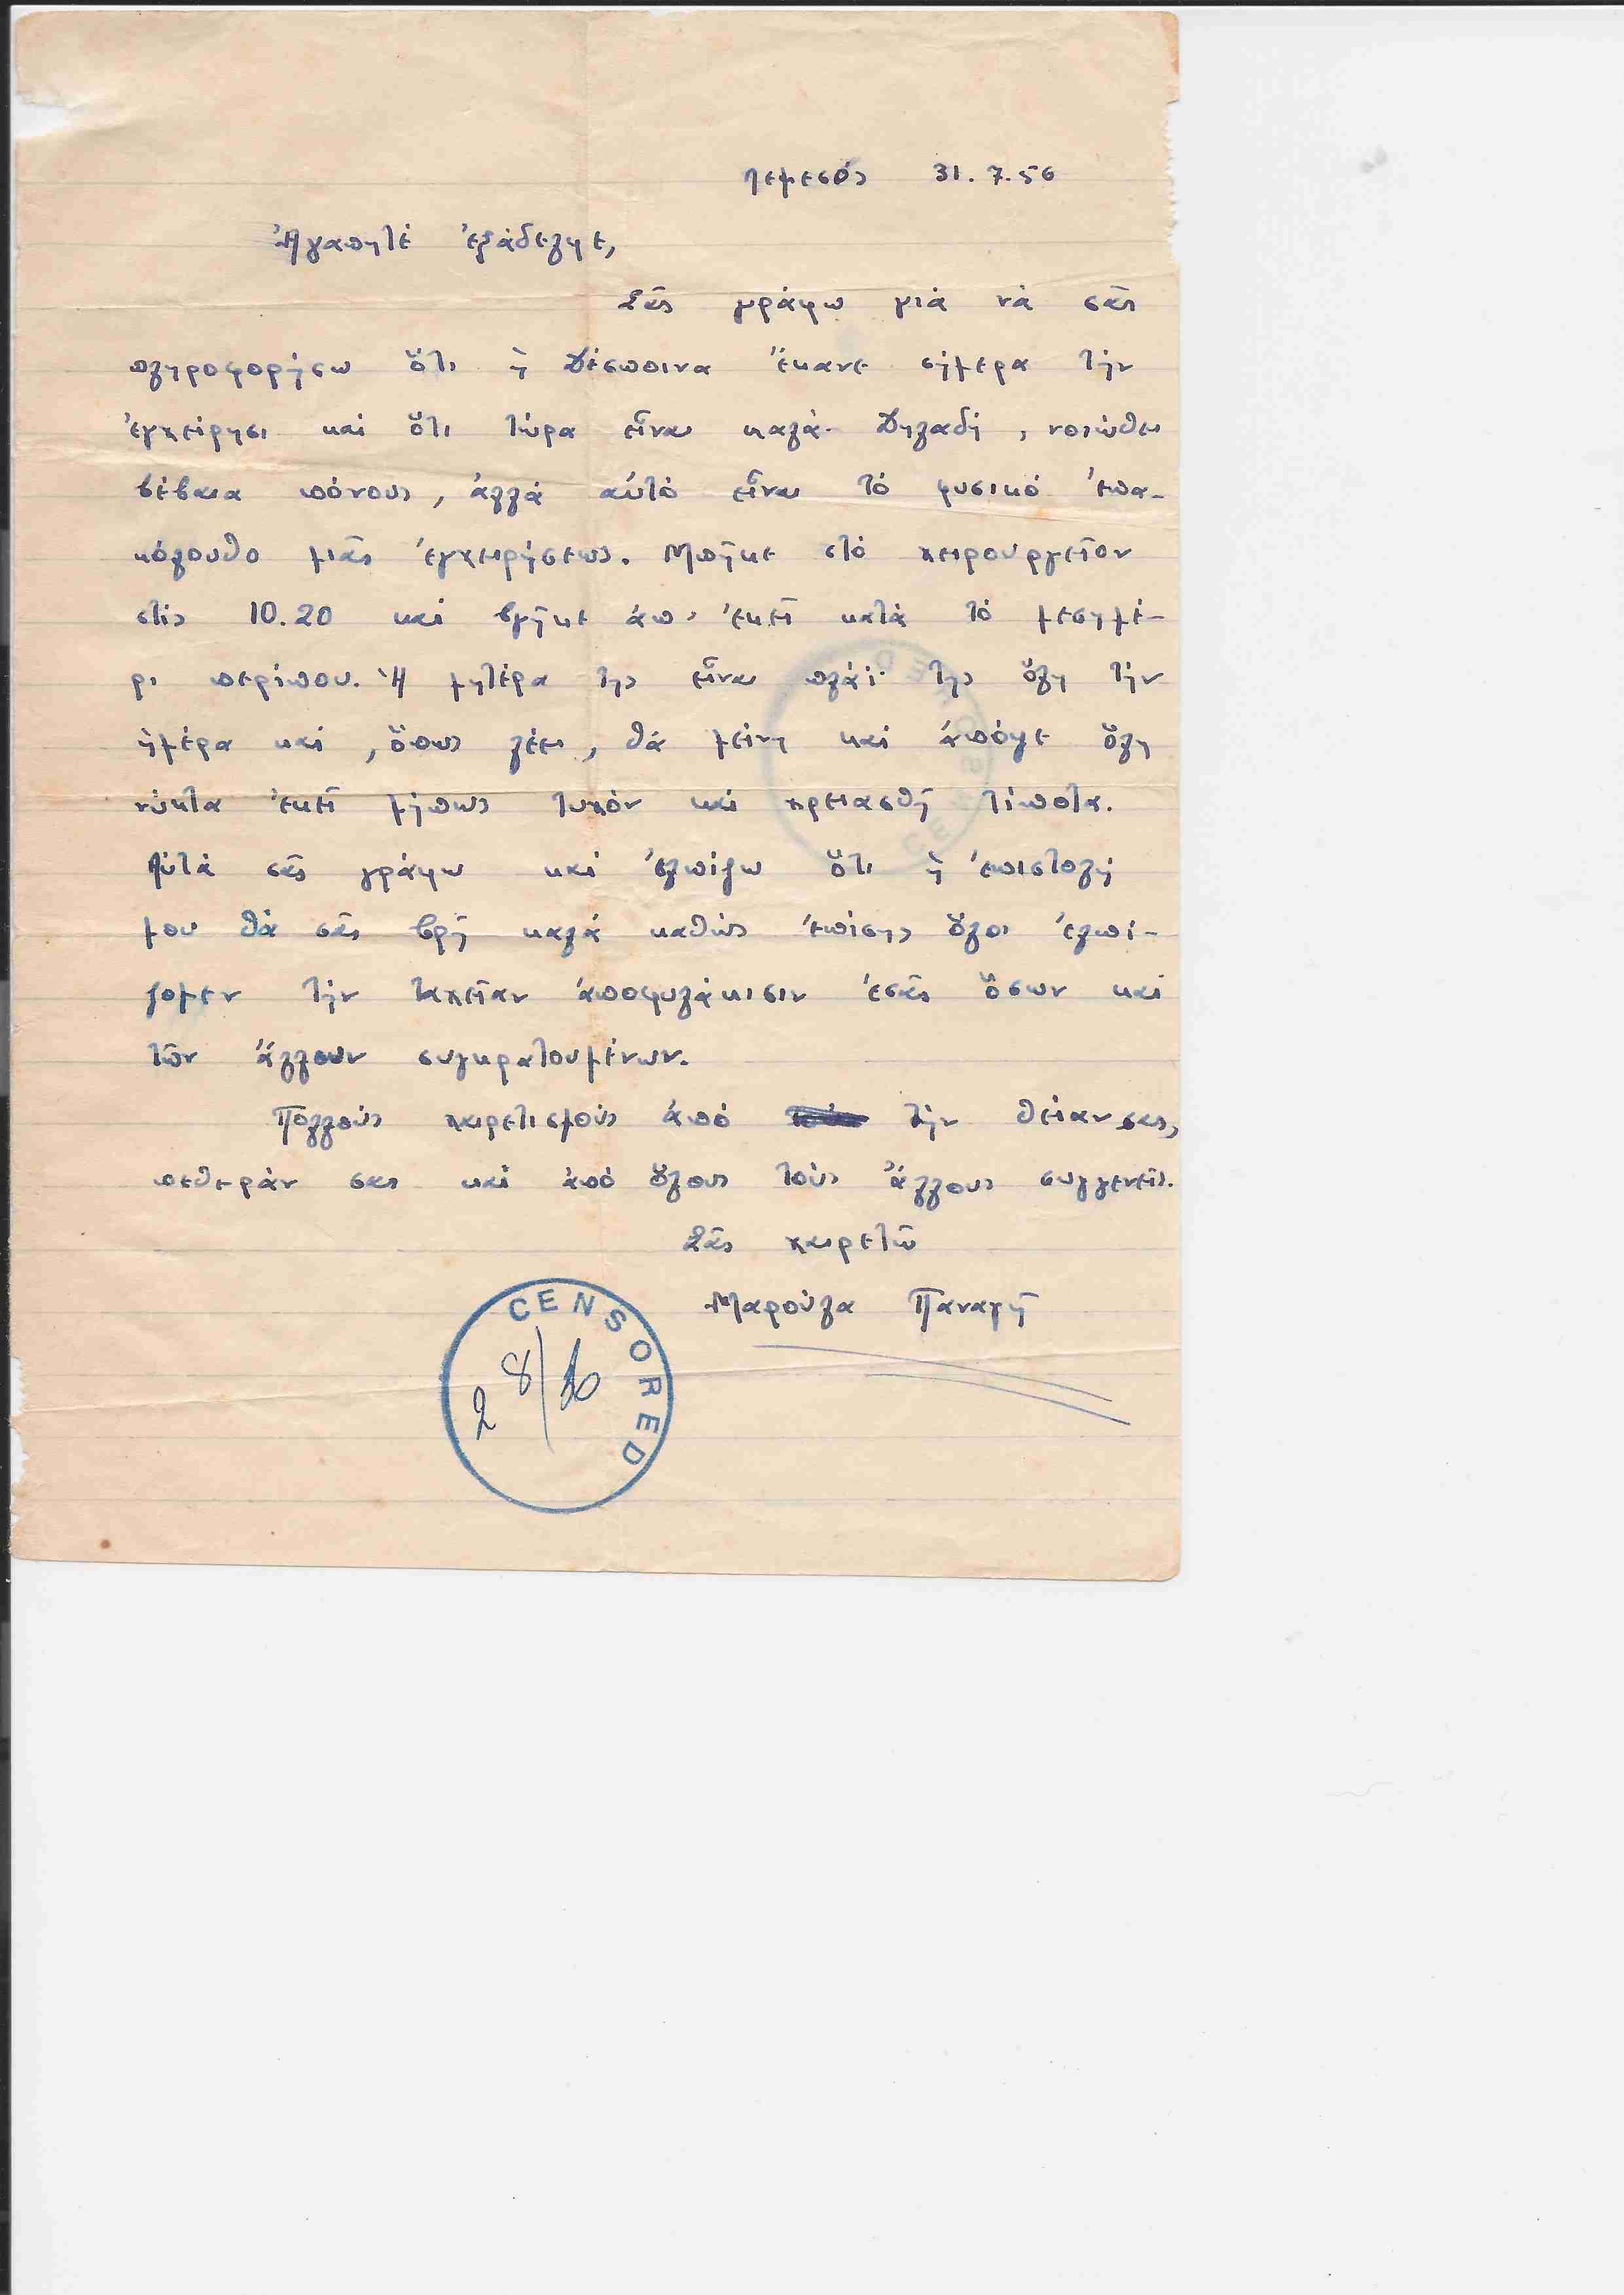 Λεμεσός 31.7.56
Ἀγαπητέ ἐξάδελφε,
Σᾶς γράφω γιά νά σᾶς
πληροφορήσω ὅτι ἡ Δέσποινα ἔκανε σήμερα τήν
ἐγχείρησι καί ὅτι τώρα εἶναι καλά. Δηλαδή, νοιώθει
βέβαια πόνους, ἀλλά αὐτό εἶναι τό φυσικό ἐπα-
κόλουθο μιᾶς ἐγχειρήσεως. Μπῆκε στό χειρουργεῖον
στίς 10.20 καί βγῆκε ἀπ' ἐκεῖ κατά τό μεσημέ-
ρι περίπου. Ἡ μητέρα της εἶναι πλάϊ της ὅλη τήν
ἡμέρα καί, ὅπως λέει, θά μείνη καί ἀπόψε ὅλη
νύκτα ἐκεῖ μήπως τυχόν καί χρειασθῆ τίποτα.
Αὐτά σᾶς γράφω καί ἐλπίζω ὅτι ἡ ἐπιστολή
μου θά σᾶς βρῆ καλά καθώς ἐπίσης ὅλοι ἐλπί-
ζομεν τήν ταχεῖαν ἀποφυλάκισιν ἐσᾶς ὅσων καί
τῶν ἄλλουν συγκρατουμένων.
Πολλούς χαιρετισμούς ἀπό τήν θείαν σας,
πεθεράν σας καί ἀπό ὅλους τούς ἄλλους συγγενεῖς.
Σᾶς χαιρετῶ
Μαρούλα Παναγῆ
CENSORED
2 8/
CENSORED